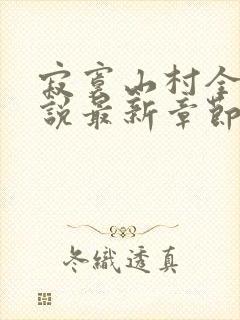 寂寞山村全
說最新章節
冬織透真